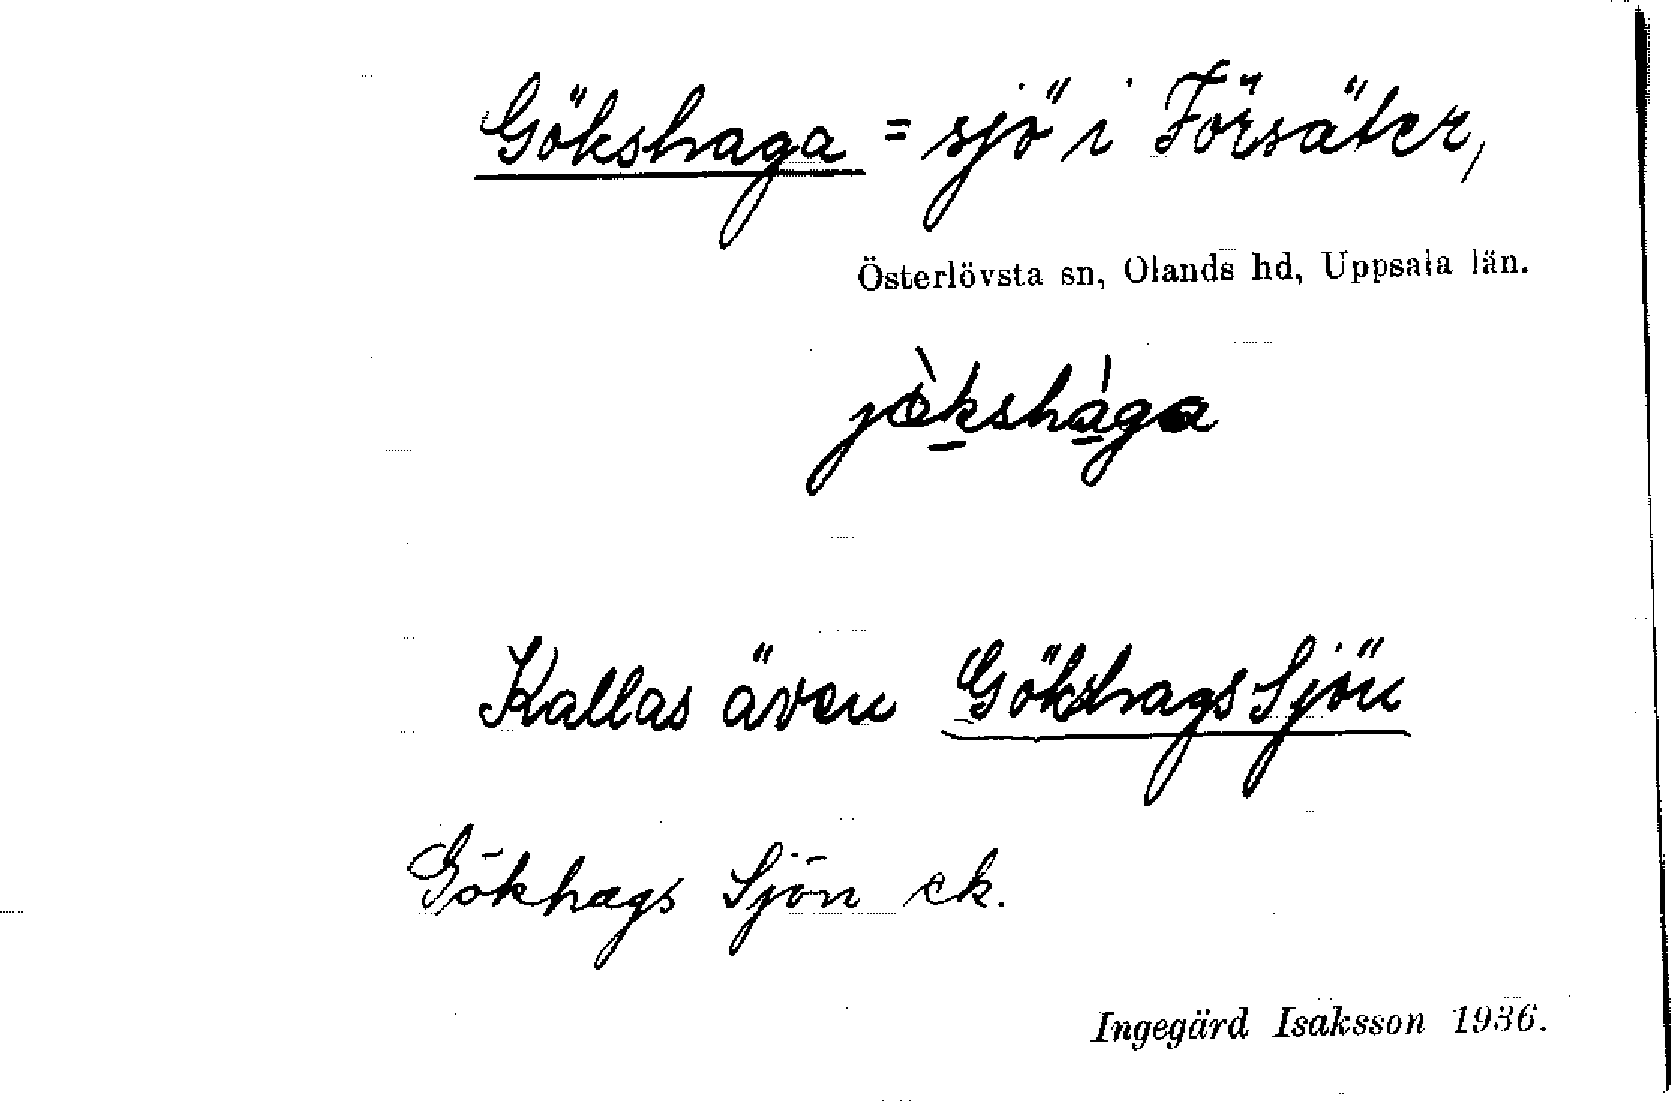 Gökshaga = sjö i Försäter,
Österlövsta sn, Olands hd, Uppsala län.
jö̀kshága
Kallas även Gökshags Sjön
Gökhags Sjön ek.
Ingegärd Isaksson 1936.